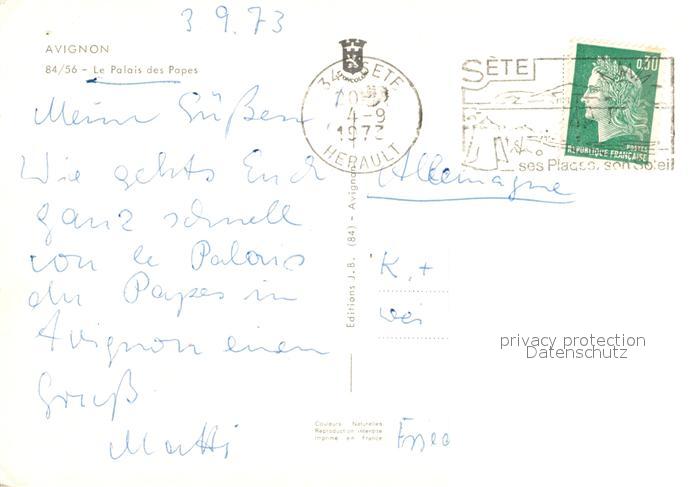 3 9.73
AVIGNON
84/56 – Le Palais des Papes
Meine Süßen
Wie gehts Euch
ganz schnell
von le Palais
du Papes in
Avignon einen
Gruß.
Matti
Editions J.B. (84) - Avignon
34 SETE
4-9
1973
HERAULT
SÈTE
ses Plages, son Soleil
0,30
POSTES
REPUBLIQUE FRANÇAISE
Allemagne
K. +
privacy protection
Datenschutz
Couleurs Naturelles
Reproduction interdite
Imprimé en France